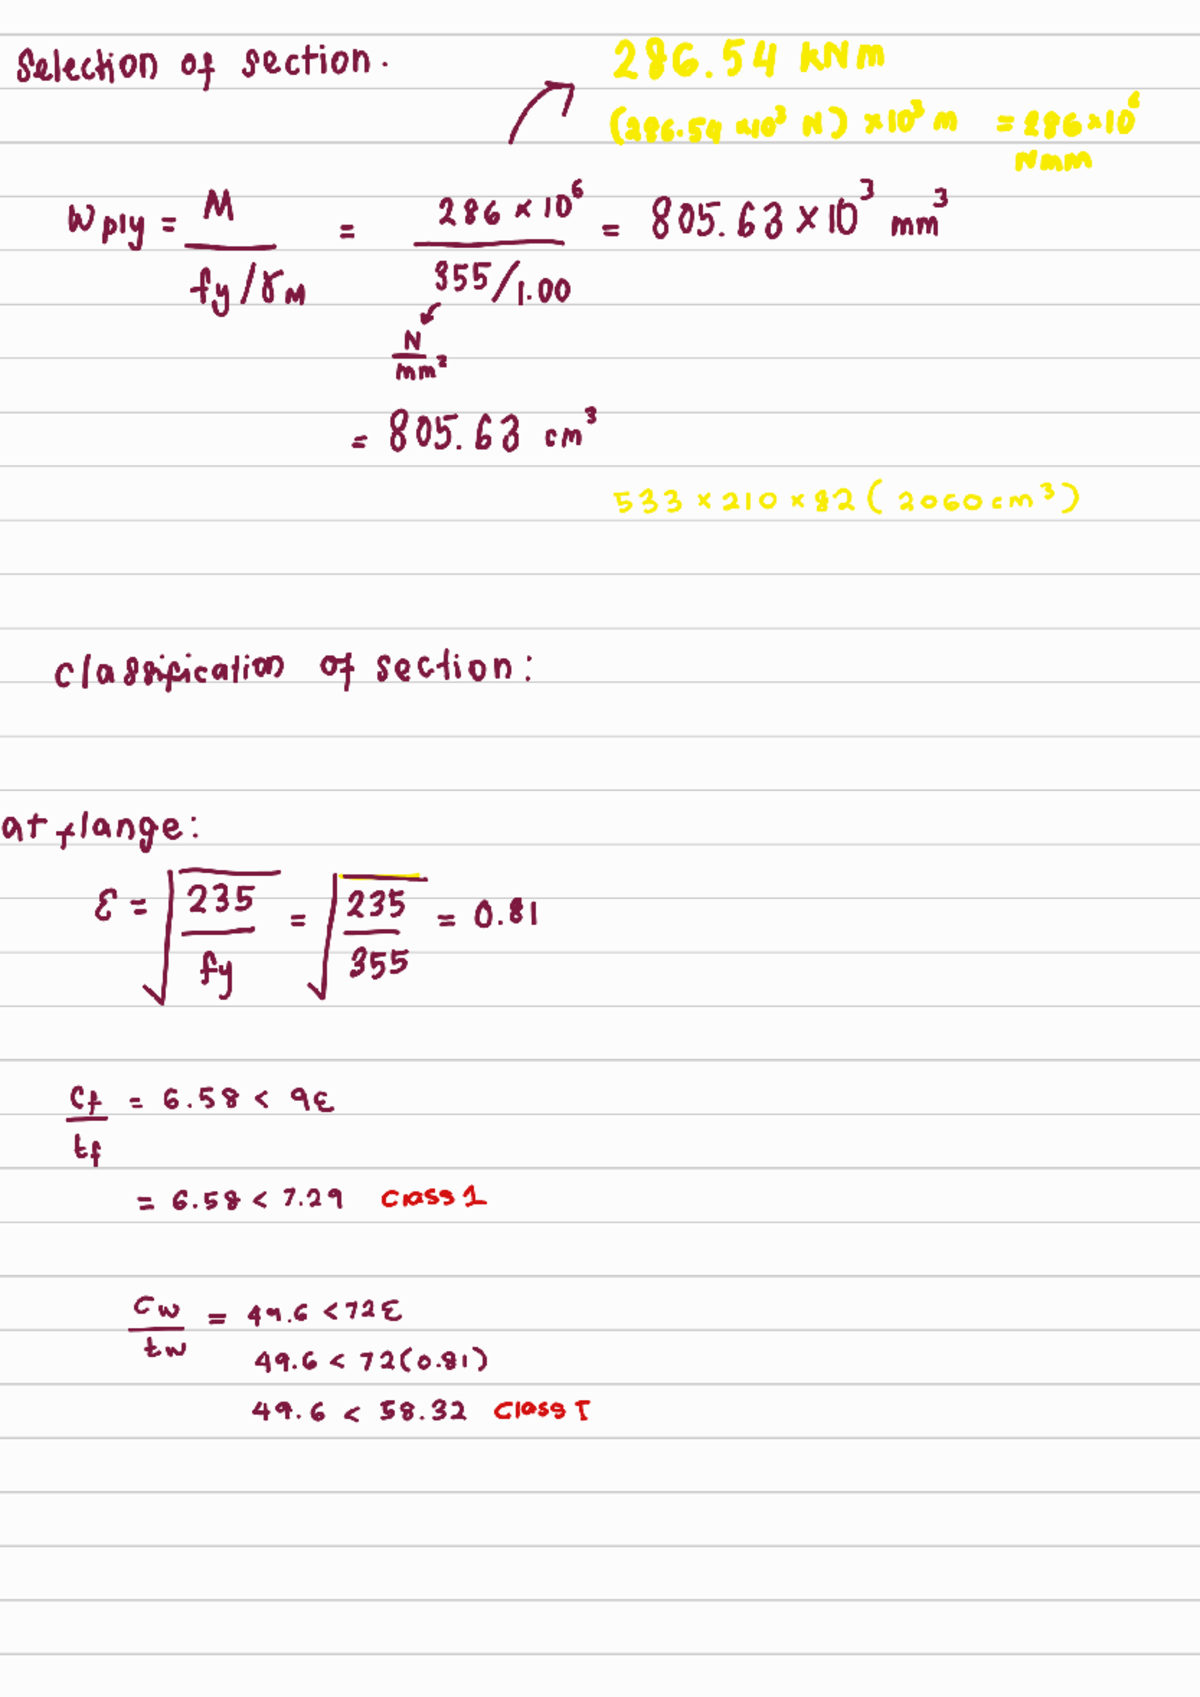 Selection of section.
286.54 kNm
(286.54 x10³ N) x10³ m = 286x10⁶
Nmm
Wply = M / fy/γM = 286 x 10⁶ / 355/1.00 = 805.63 x 10³ mm³
N/mm²
= 805.63 cm³
533 x 210 x 82 ( 2060 cm³ )
classification of section:
at flange:
ε = √235/fy = √235/355 = 0.81
cf/tf = 6.58 < 9ε
= 6.58 < 7.29 Class 1
cw/tw = 49.6 < 72ε
49.6 < 72(0.81)
49.6 < 58.32 Class I